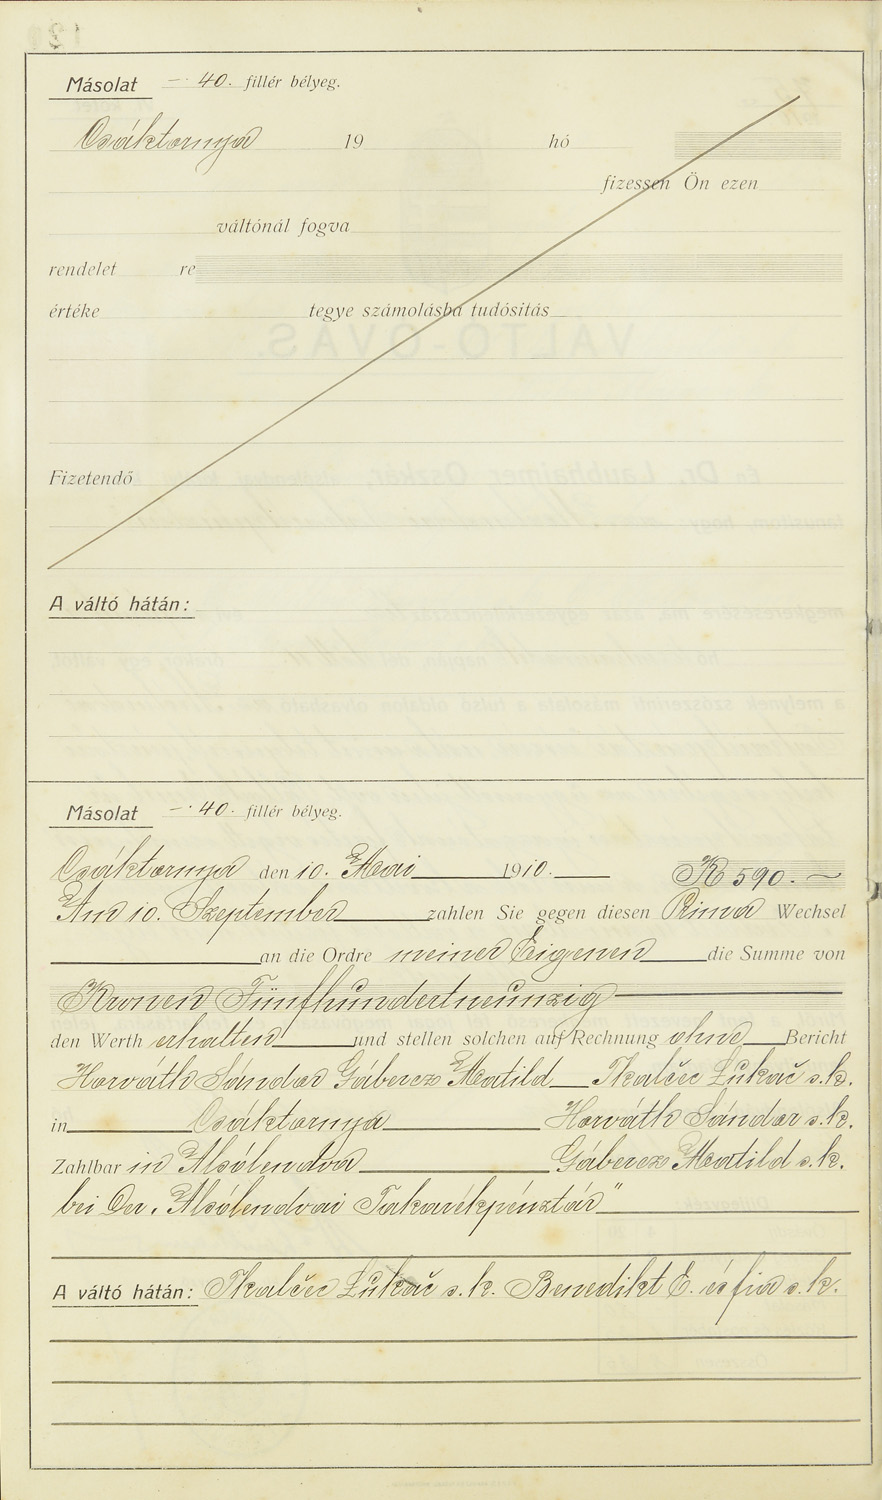 Másolat —· 40. fillér bélyeg.
Csáktornya 19 hó
fizessen Ön ezen
váltónál fogva
rendelet re
értéke tegye számolásba tudósitás
Fizetendő
A váltó hátán:
Másolat —· 40. fillér bélyeg.
Csáktornya den 10. Mai 1910. K 590. —
Am 10. Szeptember zahlen Sie gegen diesen Prima Wechsel
an die Ordre meiner Eigenen die Summe von
Kronen Fünfhundertneunzig
den Werth erhalten und stellen solchen auf Rechnung ohne Bericht
Horváth Sándor Gáberez Matild Tkalčec Lukač s.k.
in Csáktornya Horváth Sándor s.k.
Zahlbar in Alsólendva Gáberez Matild s.k.
bei Alsólendvai Takarékpénztár"
A váltó hátán: Tkalčec Lukač s.k. Benedikt E. és fia s.k.